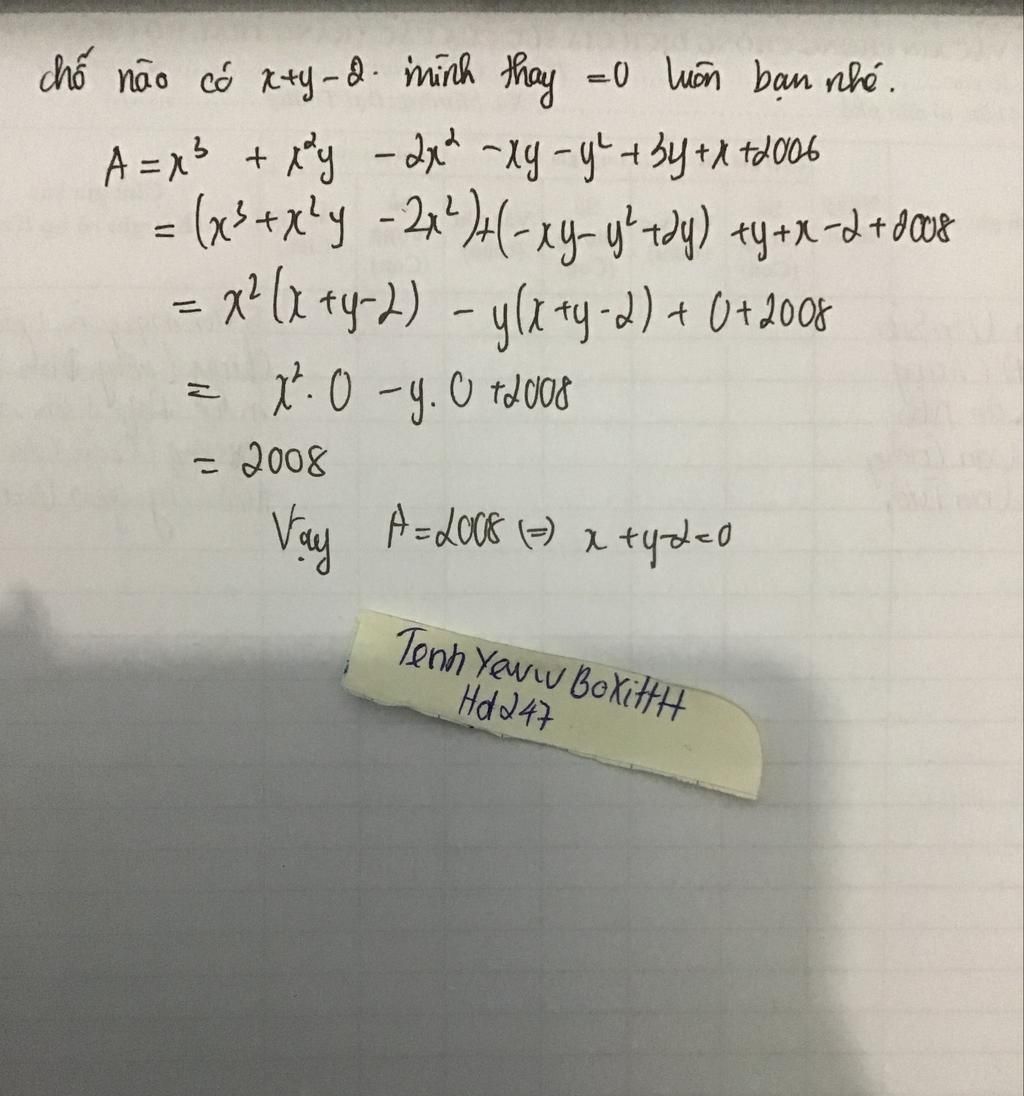 chỗ nào có x+y-2. mình thay =0 luôn bạn nhé.
A = x³ + x²y - 2x² - xy - y² + 3y + x + 2006
= (x³ + x²y - 2x²) + (-xy - y² + 2y) + y + x - 2 + 2008
= x² (x + y - 2) - y(x + y - 2) + 0 + 2008
= x². 0 - y. 0 + 2008
= 2008
Vậy A = 2008 (=) x + y - 2 = 0
Tenh Yeuw BoXiHH
Hd247